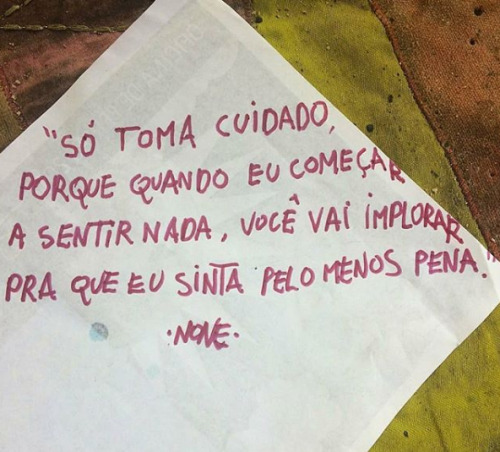 "SÓ TOMA CUIDADO,
PORQUE QUANDO EU COMEÇAR
A SENTIR NADA, VOCÊ VAI IMPLORAR
PRA QUE EU SINTA PELO MENOS PENA."
·NOVE·